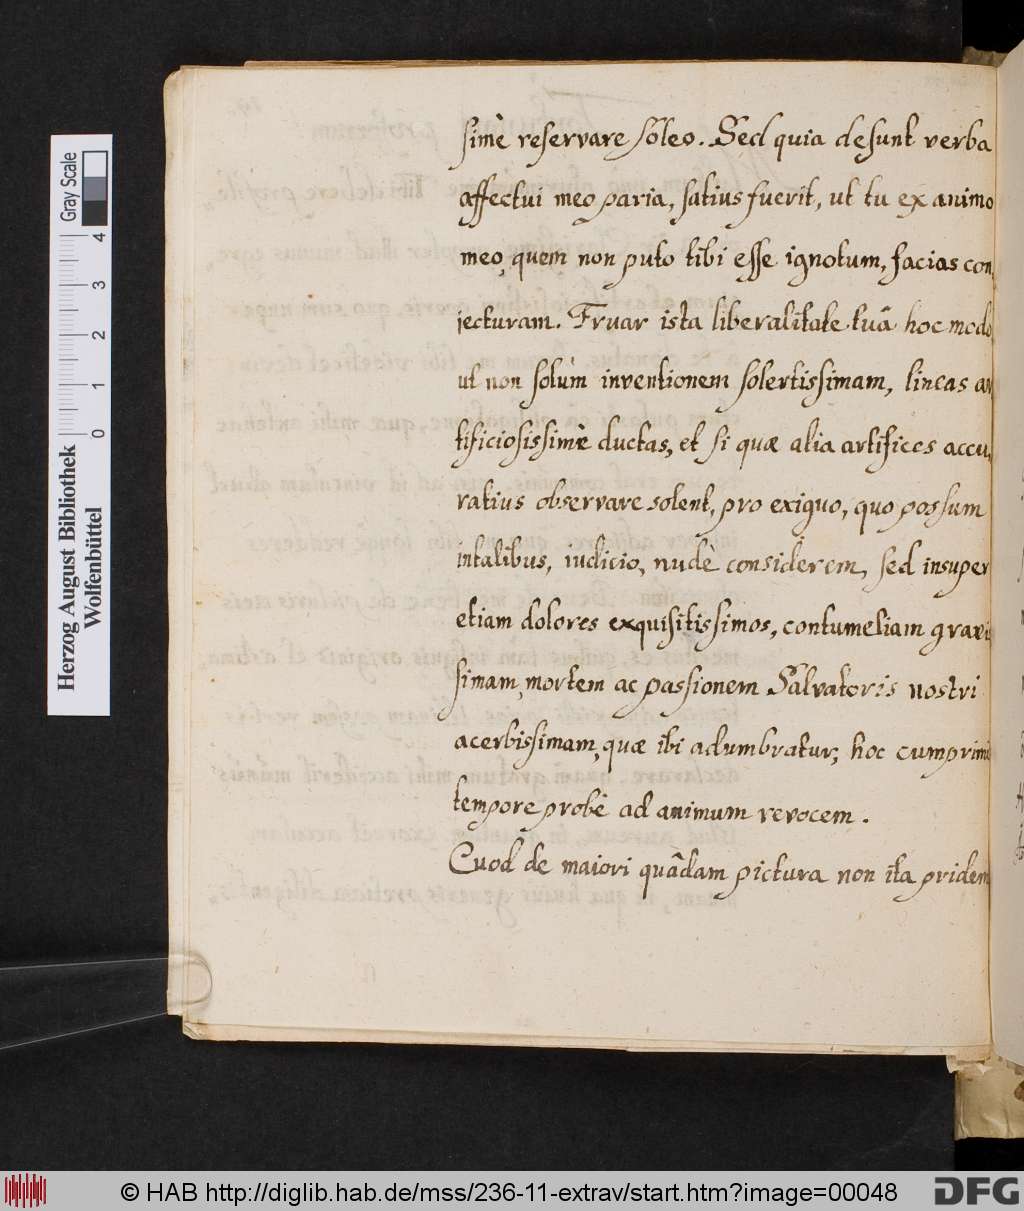 simè reservare soleo. Sed quia desunt verba
affectui meo paria, satius fuerit, ut tu ex animo
meo, quem non puto tibi esse ignotum, facias con,
jecturam. Fruar ista liberalitate tuâ hoc modo
ut non solùm inventionem solertissimam, lineas ar
tificiosissimè ductas, et si quæ alia artifices accu,
ratius observare solent, pro exiguo, quo possum
intalibus, iudicio, nudè considerem, sed insuper
etiam dolores exquisitissimos, contumeliam gravis
simam, mortem ac passionem Salvatoris nostri
acerbissimam, quæ ibi adumbratur, hoc cumprimis
tempore probè ad animum revocem.
Cuod de maiori quâdam pictura non ita pridem
Herzog August Bibliothek
Wolfenbüttel
0 1 2 3 4
Gray Scale
© HAB http://diglib.hab.de/mss/236-11-extrav/start.htm?image=00048
DFG